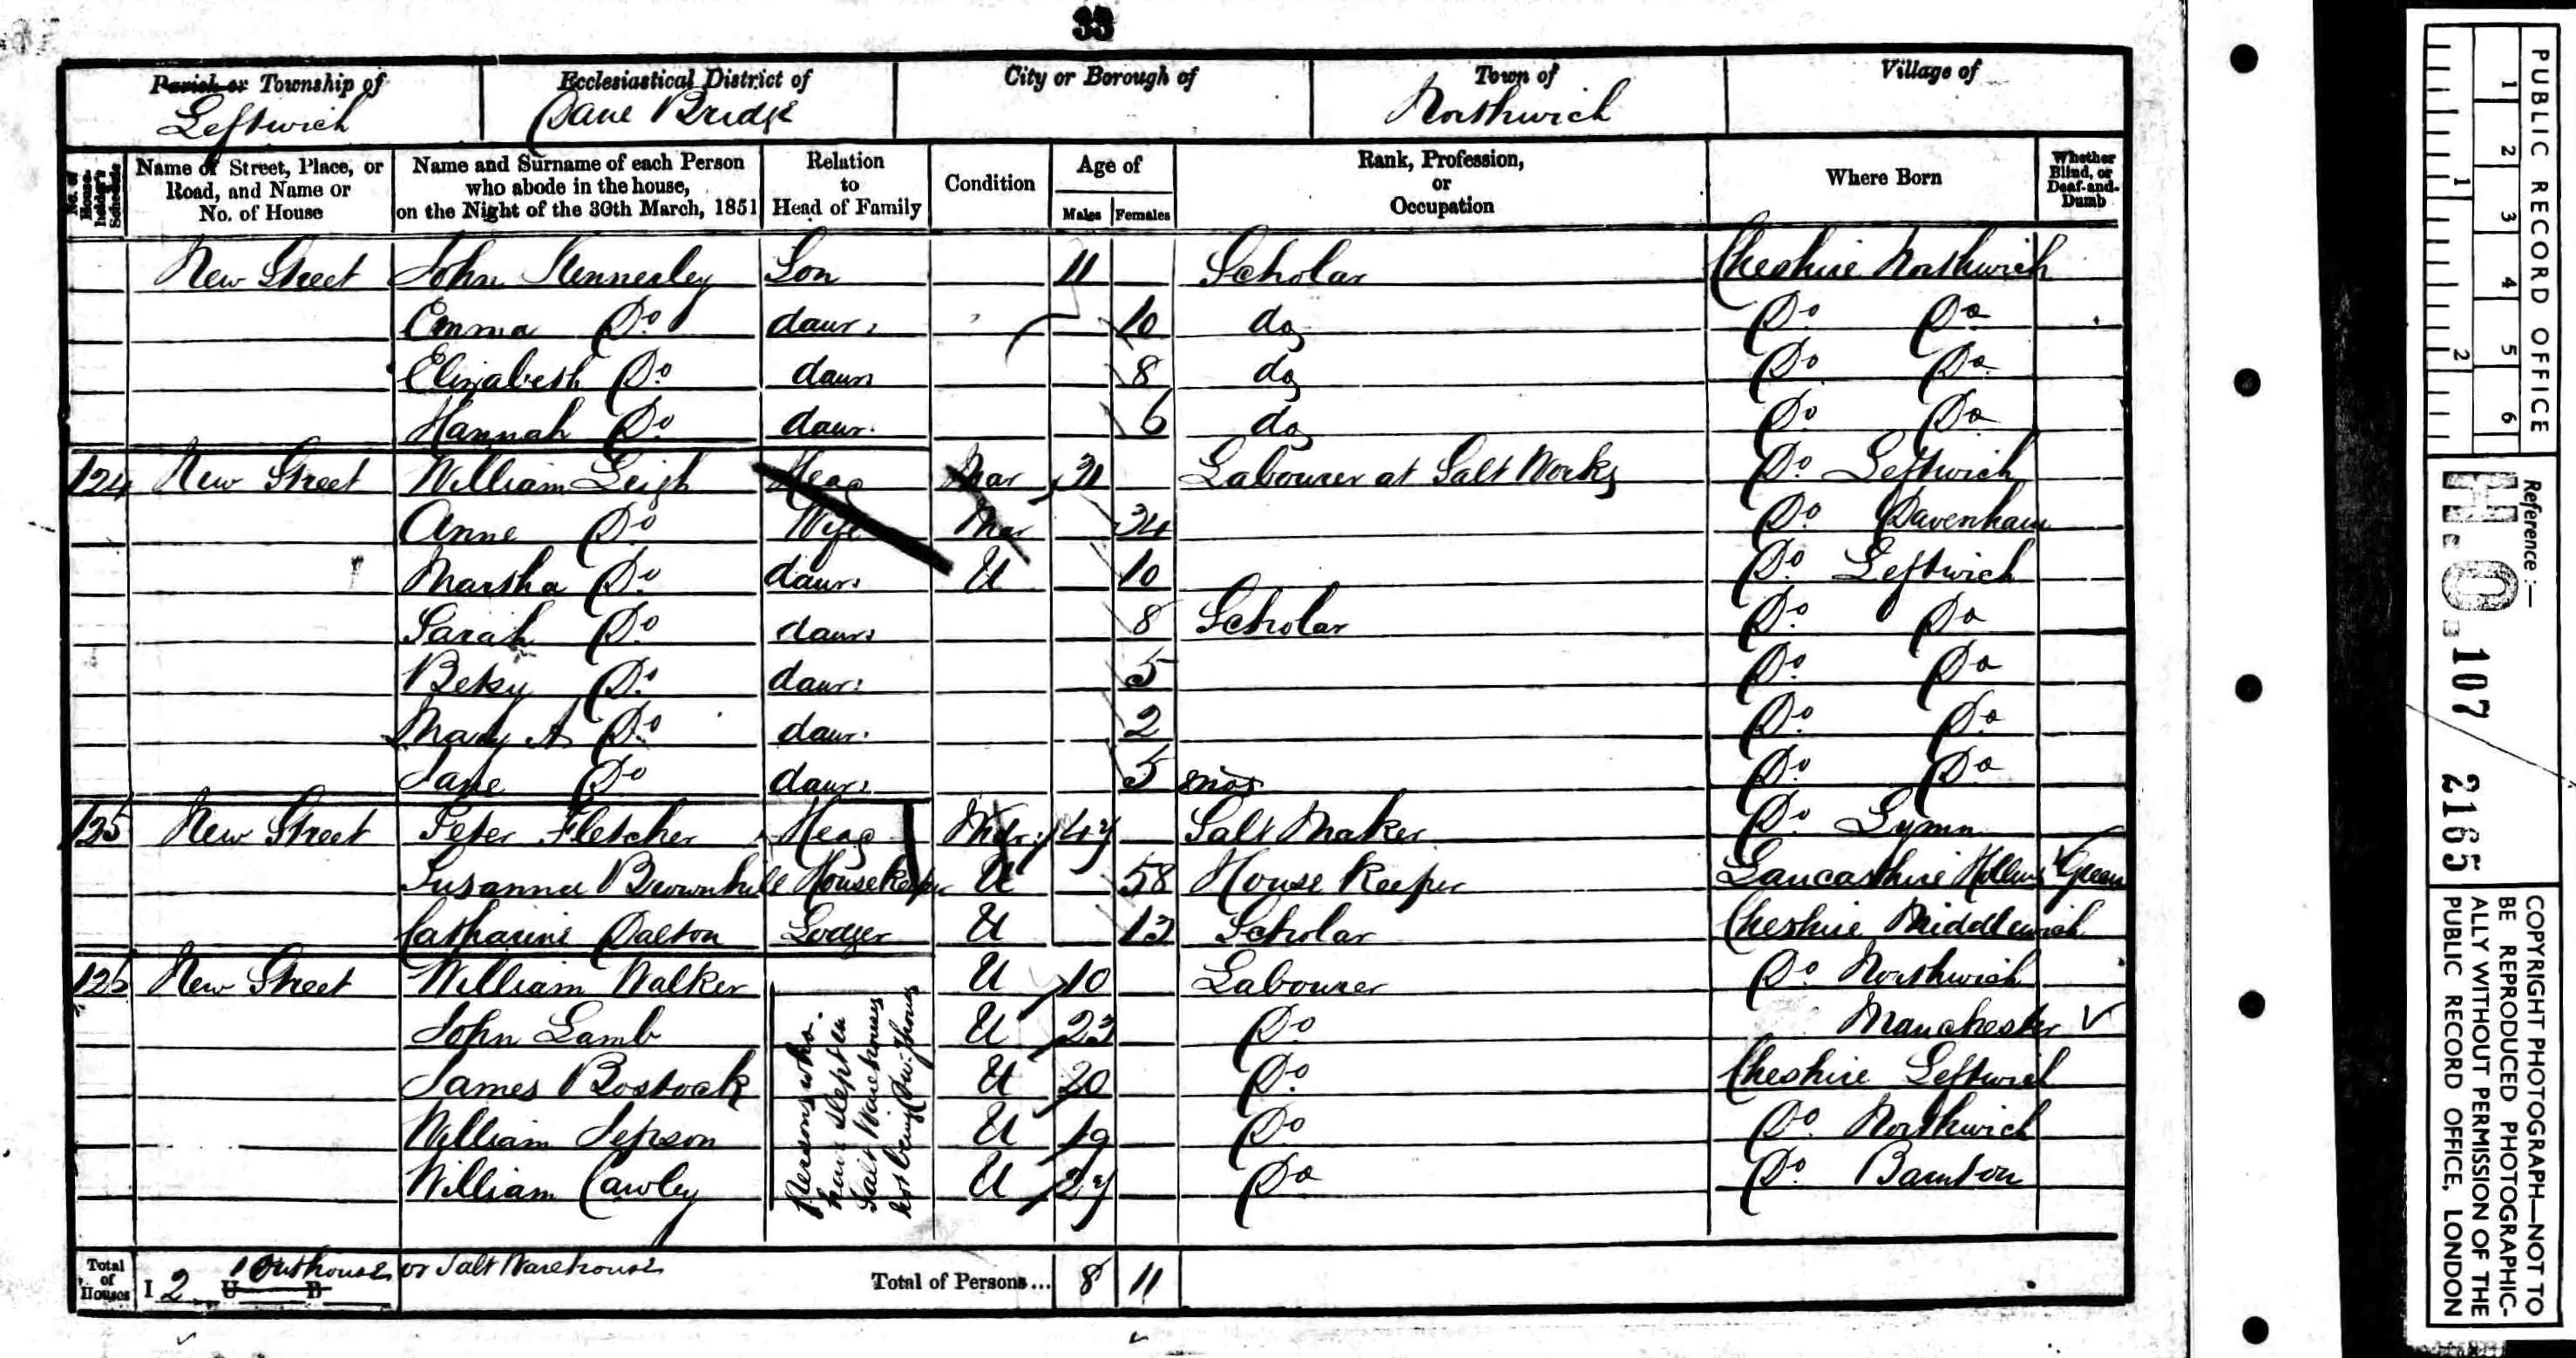 33
Parish or Township of Ecclesiastical District of City or Borough of Town of Village of
Leftwich Dane Bridge Northwich
No. of House-holder's Schedule Name of Street, Place, or Road, and Name or No. of House Name and Surname of each Person who abode in the house, on the Night of the 30th March, 1851 Relation to Head of Family Condition Age of Males Females Rank, Profession, or Occupation Where Born Whether Blind, or Deaf-and-Dumb
New Street John Kennerley Son 11 Scholar Cheshire Northwich
Emma Do daur. 10 do Do Do
Elizabeth Do daur 8 do Do Do
Hannah Do daur. 6 do Do Do
124 New Street William Leigh Head Mar 31 Labourer at Salt Works Do Leftwich
Anne Do Wife Mar 34 Do Davenham
Martha Do daur. U 10 Do Leftwich
Sarah Do daur. 8 Scholar Do Do
Betsy Do daur. 5 Do Do
Mary A Do daur. 2 Do Do
Jane Do daur. 5 mos Do Do
125 New Street Peter Fletcher Head 47 Salt Maker Do Lymn
Susanna Brownhill Housekeeper U 58 House Keeper Lancashire Hollins Green
Catharine Dalton Lodger U 13 Scholar Cheshire Middlewich
126 New Street William Walker U Labourer Do Northwich
John Lamb U 23 Do Manchester
James Bostock U 20 Do Cheshire Leftwich
William Jepson U 19 Do Do Northwich
William Cawley U 27 Do Do Barnton
Persons who
have slept in
Salt Warehouses
not being Dw. Houses
Total of Houses I 2 U B 1 Outhouse or Salt Warehouse Total of Persons... 8 11
PUBLIC RECORD OFFICE
1 2 3 4 5 6
1 2
Reference :-
H.O. 107 2165
COPYRIGHT PHOTOGRAPH—NOT TO
BE REPRODUCED PHOTOGRAPHIC-
ALLY WITHOUT PERMISSION OF THE
PUBLIC RECORD OFFICE, LONDON